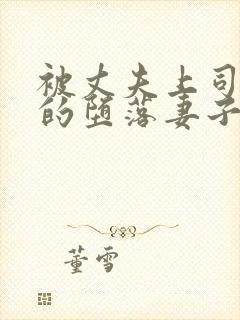 被丈夫上司
的堕落妻子
董雪